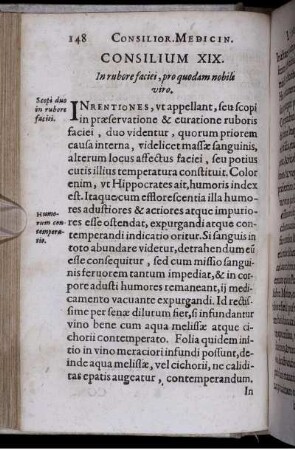 148 CONSILIOR. MEDICIN.
CONSILIUM XIX.
In rubore faciei, pro quodam nobili
viro.
Scopi duo
in rubore
faciei.
INRENTIONES, vt appellant, seu scopi
in præservatione & curatione ruboris
faciei, duo videntur, quorum priorem
causa interna, videlicet massæ sanguinis,
alterum locus affectus faciei, seu potius
cutis illius temperatura constituit. Color
enim, vt Hippocrates ait, humoris index
est. Itaque cum efflorescentia illa humo
res adustiores & acriores atque impurio-
res esse ostendat, expurgandi atque con-
temperandi indicatio oritur. Si sanguis in
toto abundare videtur, detrahendum eũ
esse consequitur, sed cum missio sangui-
nis feruorem tantum impediat, & in cor-
pore adusti humores remaneant, ij medi-
camento vacuante expurgandi. Id rectis-
sime per senæ dilutum fiet, si infundantur
vino bene cum aqua melissæ atque ci-
chorii contemperato. Folia quidem ini-
tio in vino meraciori infundi possunt, de-
inde aqua melissæ, vel cichorii, ne calidi-
tas epatis augeatur, contemperandum.
In
Humo-
rum con-
tempera-
tio.